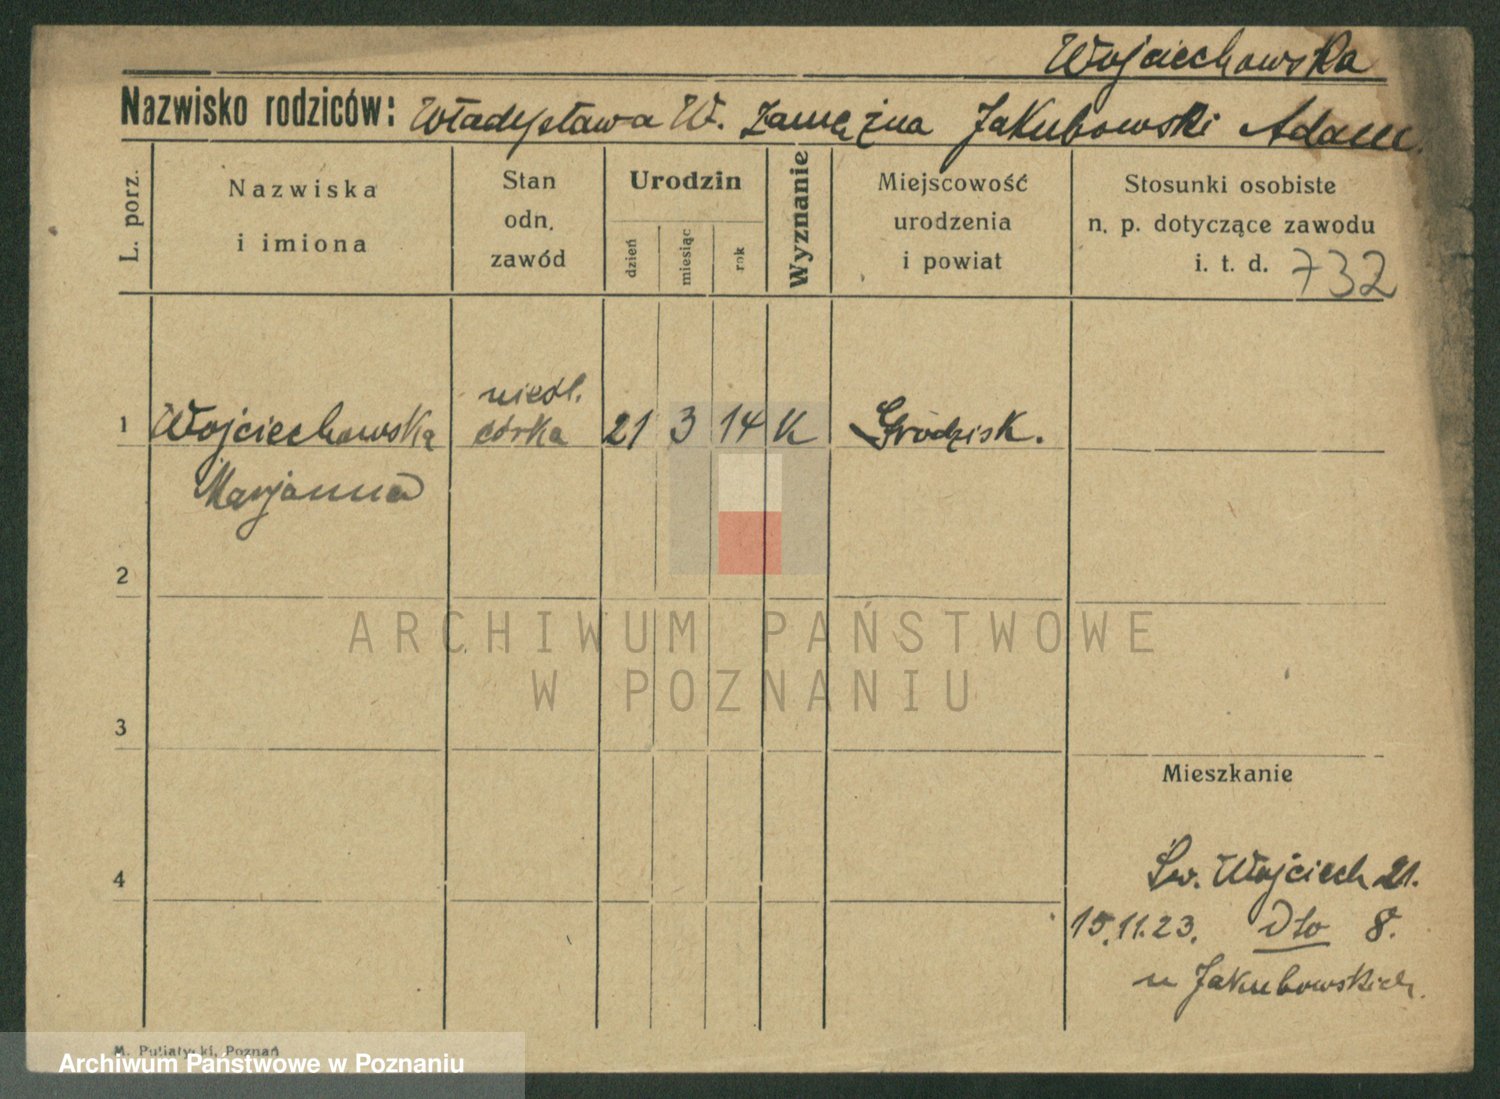 Wojciechowska
Nazwisko rodziców: Władysława W. zamężna Jakubowski Adam.
L. porz.
Nazwiska i imiona
Stan odn. zawód
Urodzin
dzień
miesiąc
rok
Wyznanie
Miejscowość urodzenia i powiat
Stosunki osobiste
n. p. dotyczące zawodu
i. t. d. 732
1 Wojciechowska nieśl. córka 21 3 14 K Grodzisk.
Marjanna
2
ARCHIWUM PAŃSTWOWE
W POZNANIU
3
Mieszkanie
4
Św. Wojciech 21.
15.11.23. Dto 8.
u Jakubowskich.
M. Putiatycki, Poznań
Archiwum Państwowe w Poznaniu